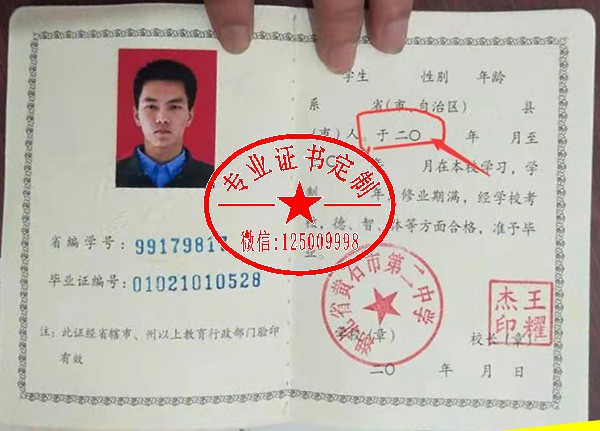 学生 性别 年龄
系 省(市、自治区) 县
(市)人,于二〇 年 月至
〇 年 月在本校学习,学
制 年,修业期满,经学校考
核,德、智、体等方面合格,准予毕
业。
省编学号:9917981
毕业证编号:01021010528
注:此证经省辖市、州以上教育行政部门验印
有效
专业证书定制
微信:125009998
湖北省黄石市第二中学
学校(章) 校长(章)
王耀
杰印
二〇 年 月 日